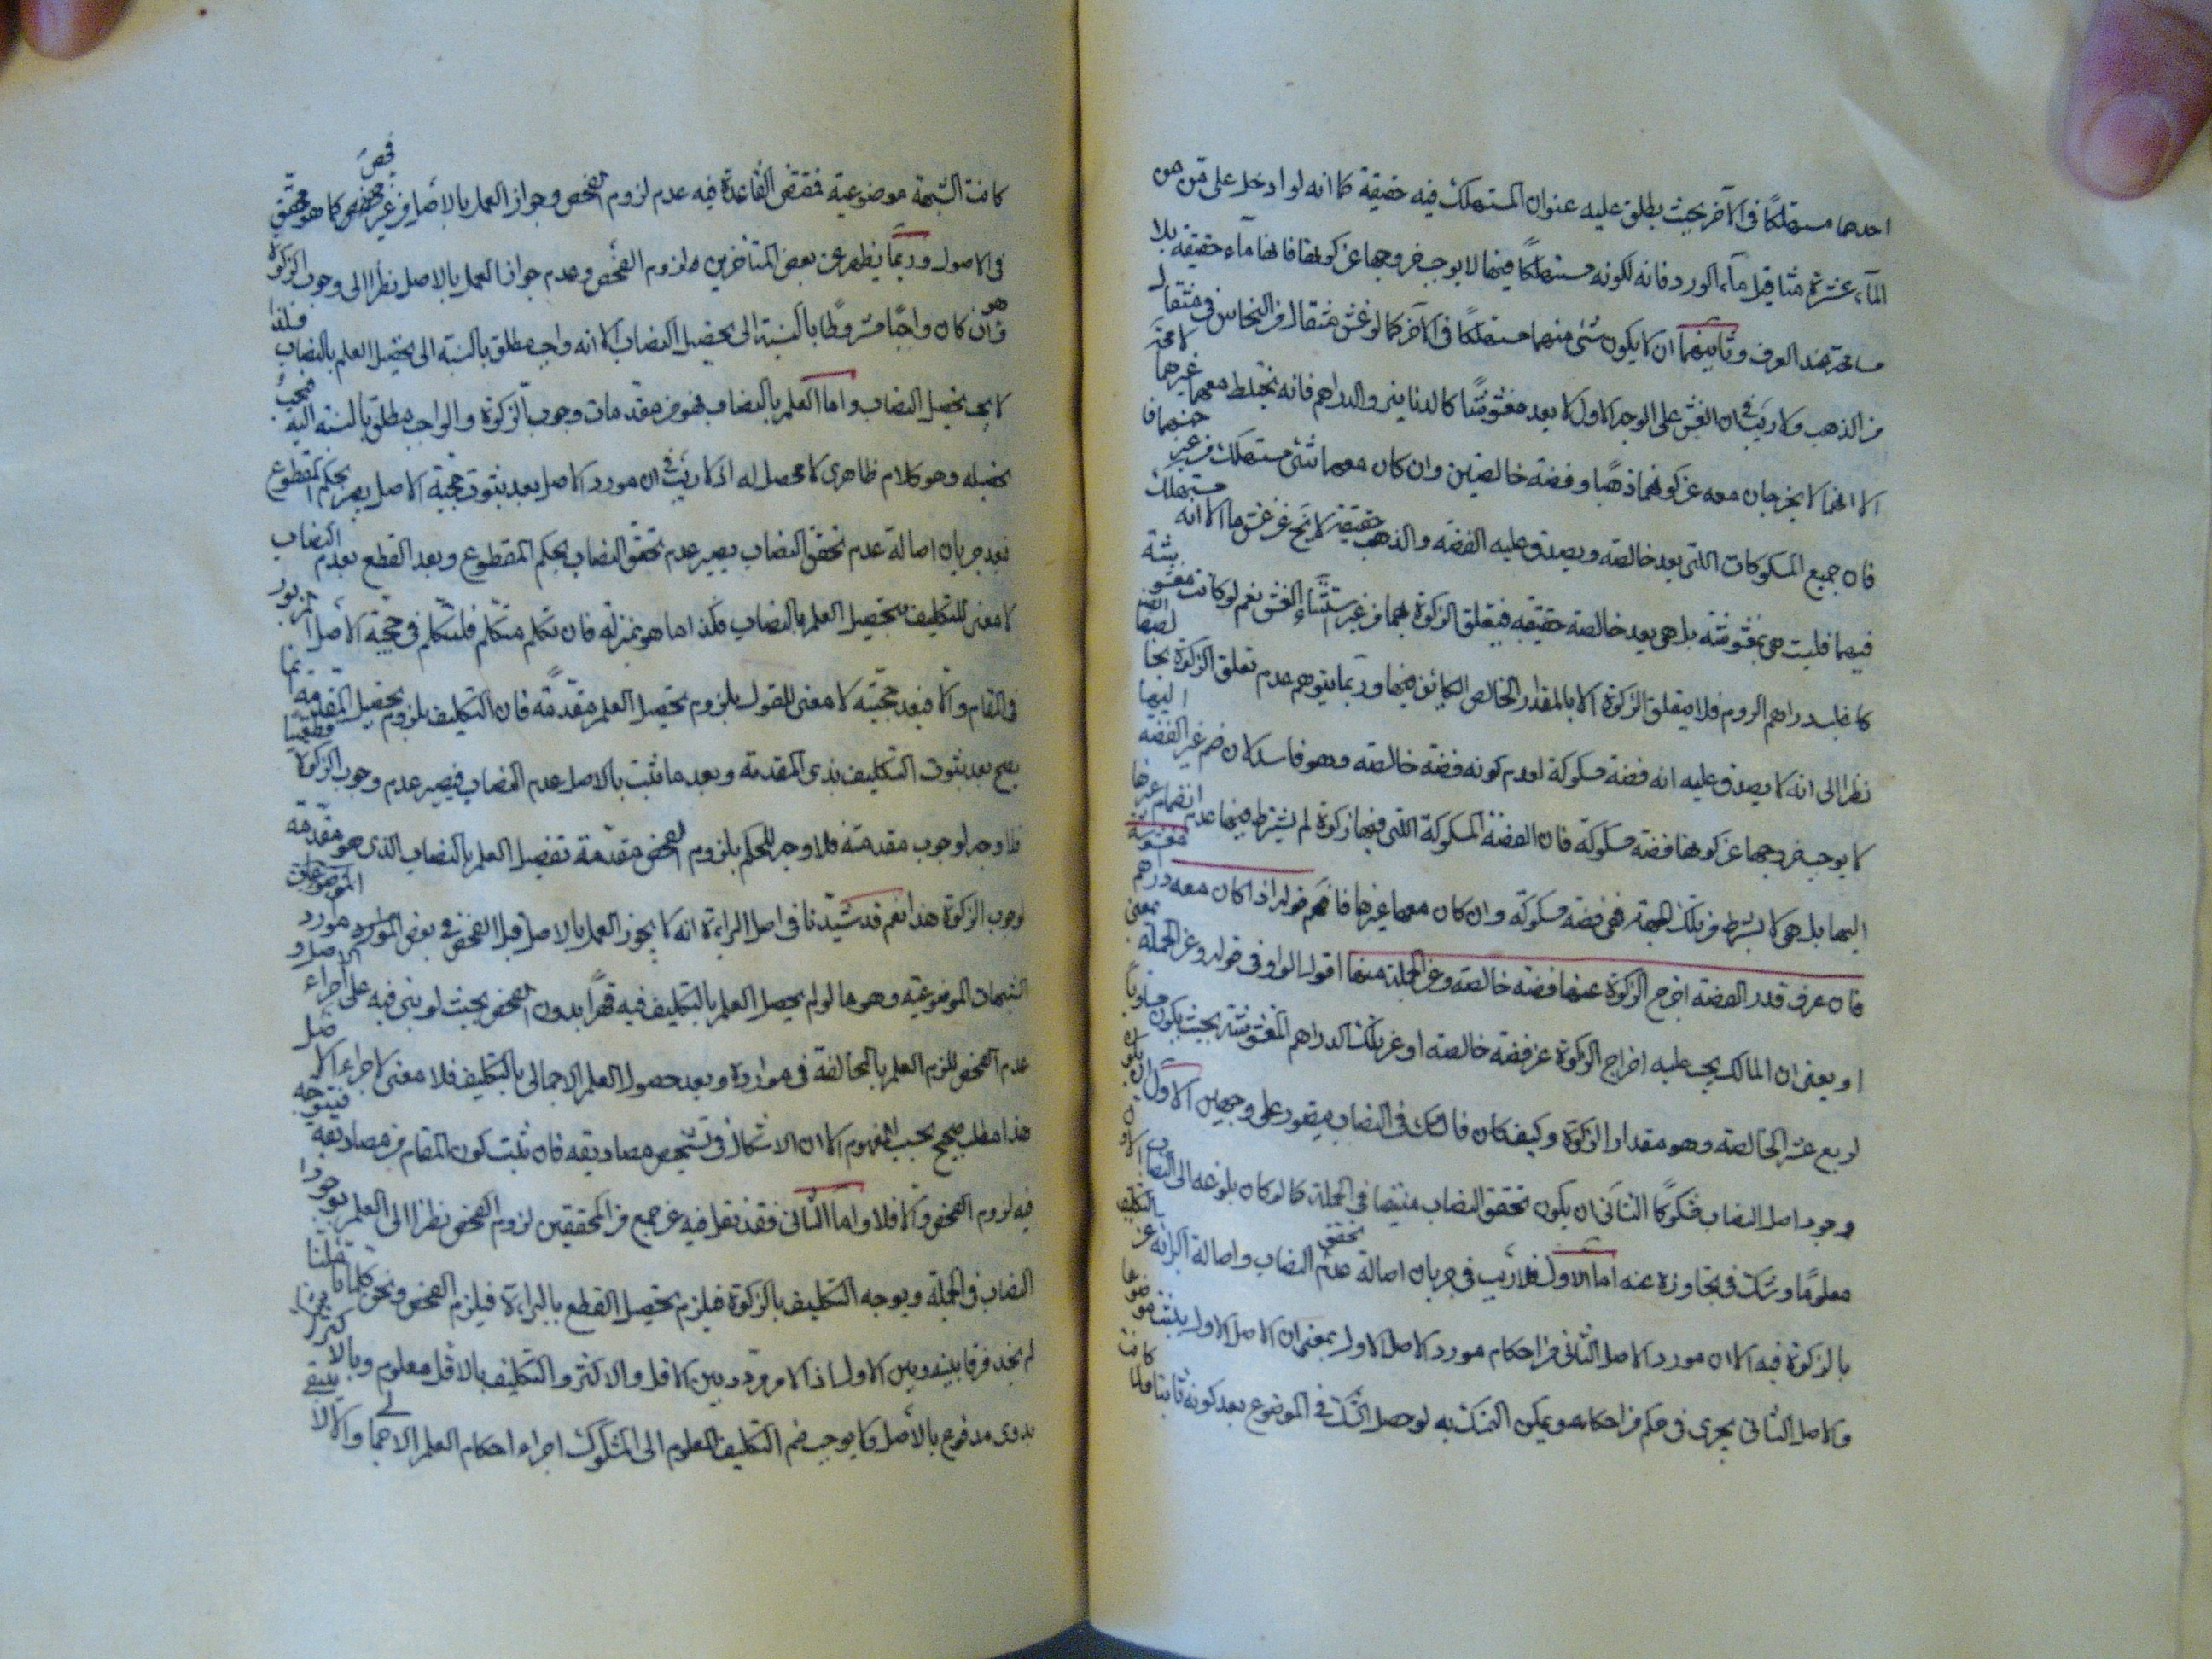 احدهما مستهلكًا فى الآخر بحيث يطلق عليه عنوان المستهلك فيه حقيقة كما انه لو ادخل على من من
المآء عشرة مثاقيل مآء الورد فانه لكونه مستهلكًا فيها لا يوجب خروجها عن كونها فانها مآء حقيقة بلا
مسامحة عند العرف وثانيهما ان لا يكون شئ منهما مستهلكًا فى الآخر كما لو غش مثقال من النحاس فى مثقال
من الذهب ولا ريب فى ان الغش على الوجه الاول لا يعد مغشوشًا كالدنانير والدراهم فانه يختلط معهما غيرهما لا محة
الا انهما لا يخرجان معه عن كونهما ذهبًا وفضة خالصتين وان كان معهما شئ مستهلك من غير جنسهما
فان جميع المسكوكات اللتى يعد خالصة ويصدق عليه الفضة والذهب حقيقة لا يخ عن غش ما الا انه مستهلك
فيهما فليست هى بمغشوشة بل هى يعد خالصة حقيقة فيتعلق الزكوة بهما من غير استثناء الغش نعم لو كانت مغشوشة
كاغلب دراهم الروم فلا يتعلق الزكوة الا بالمقدار الخالص الكائن فيها وربما يتوهم عدم تعلق الزكوة بخالصها
نظرا الى انه لا يصدق عليه انه فضة مسكوكة لعدم كونه فضة خالصة وهو فاسد لان ضم غير الفضة اليها
لا يوجب خروجها عن كونها فضة مسكوكة فان الفضة المسكوكة اللتى فيها زكوة لم يشترط فيها عدم انضمام غيرها
اليها بل هى لا بشرط من تلك الجهة فهى فضة مسكوكة وان كان معها غيرها فافهم قوله اذا كان معه دراهم مغشوشة
فان عرف قدر الفضة اخرج الزكوة عنها فضة خالصة وعن الجملة منها اقول الواو فى قوله وعن الجملة بمعنى
او يعنى ان المالك يجب عليه اخراج الزكوة عن فضة خالصة او عن تلك الدراهم المغشوشة بحيث يكون مساويًا
لربع عشر الخالصة وهو مقدار الزكوة وكيف كان فالشك فى النصاب يتصور على وجهين الاول ان يكون
وجود اصل النصاب مشكوكًا الثانى ان يكون تحقق النصاب متيقنا فى الجملة كما لو كان بلوغه الى النصاب الاول
معلومًا وشك فى تجاوزه عنه اما الاول فلا ريب فى جريان اصالة عدم تحقق النصاب واصالة البرائة عن التكليف
بالزكوة فيه الا ان مورد الاصل الثانى من احكام مورد الاصل الاول بمعنى ان الاصل الاول يثبت موضوعا
والاصل الثانى يجرى فى حكم من احكامه ويمكن التمسك به لو حصل الشك فى الموضوع بعد كونه ثابتا ولما كانت
كانت الشبهة موضوعية فمقتضى القاعدة فيه عدم لزوم الفحص وجواز العمل بالاصل من غير فحص كما هو محقق
فى الاصول وربما يظهر عن بعض المتاخرين لزوم الفحص وعدم جواز العمل بالاصل نظرا الى وجوب الزكوة
هو وان كان واجبًا مشروطًا بالنسبة الى تحصيل النصاب الا انه واجب مطلق بالنسبة الى تحصيل العلم بالنصاب فلذا
لا يجب تحصيل النصاب واما العلم بالنصاب فهو من مقدمات وجوب الزكوة والواجب مطلق بالنسبة اليه فيجب
تحصيله وهو كلام ظاهرى لا محصل له اذ لا ريب فى ان مورد الاصل بعد ثبوت حجية الاصل يصير بحكم المقطوع
فبعد جريان اصالة عدم تحقق النصاب يصير عدم تحقق النصاب بحكم المقطوع وبعد القطع بعدم النصاب
لا معنى للتكليف بتحصيل العلم بالنصاب فكذا ما هو بمنزلته فان تكلم متكلم فليتكلم فى حجية الاصل المزبور
فى المقام والا فبعد حجيته لا معنى للقول بلزوم تحصيل العلم مقدمة فان التكليف بلزوم تحصيل المقدمة انما
يصح بعد ثبوت التكليف بذى المقدمة وبعد ما ثبت بالاصل عدم النصاب فيصير عدم وجوب الزكوة قطعيا
فلا وجه لوجوب مقدمته فلا وجه للحكم بلزوم الفحص مقدمة تحصيل العلم بالنصاب الذى هو مقدمة
لوجوب الزكوة هذا نعم قد شيدنا فى اصل البراءة انه لا يجوز العمل بالاصل قبل الفحص فى بعض الموارد
الشبهات الموضوعية وهو ما لو لم يحصل العلم بالتكليف فيه قهرًا بدون الفحص بحيث لو بنى فيه على اجراء الاصل و
عدم الفحص للزم العلم بالمخالفة فى موارده وبعد حصول العلم الاجمالى بالتكليف فلا معنى لاجراء الاصل
هذا مطلب صحيح بحسب المفهوم الا ان الاشكال فى تشخيص مصاديقه فان ثبت كون المقام من مصاديقه فيتوجه
فيه لزوم الفحص والا فلا واما الثانى فقد نقل فيه عن جمع من المحققين لزوم الفحص نظرا الى العلم بوجود
النصاب فى الجملة وبوجه التكليف بالزكوة فيلزم تحصيل القطع بالبراءة فيلزم الفحص ونحن كلما تاملنا
لم نجد فرقا بينه وبين الاول اذ الامر مردد بين الاقل والاكثر والتكليف بالاقل معلوم وبالاكثر
بدوى مدفوع بالاصل ولا يوجب ضم التكليف المعلوم الى المشكوك اجراء احكام العلم الاجمالى والا لا يبقى